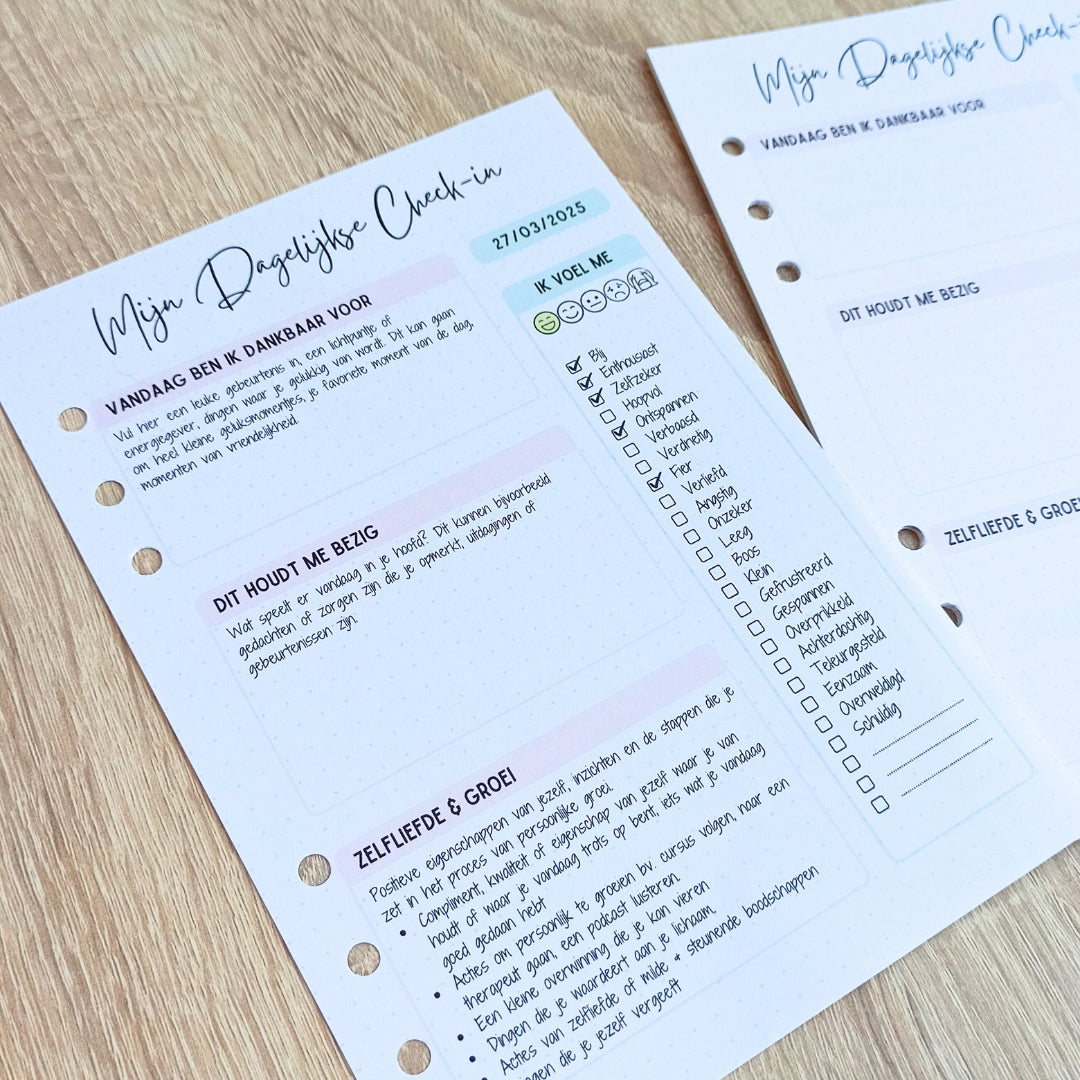 Mijn Dagelijkse Check-in
27/03/2025
VANDAAG BEN IK DANKBAAR VOOR
Vul hier een leuke gebeurtenis in, een lichtpuntje of
energiegever, dingen waar je gelukkig van wordt. Dit kan gaan
om heel kleine geluksmomentjes, je favoriete moment van de dag,
momenten van vriendelijkheid.
DIT HOUDT ME BEZIG
Wat speelt er vandaag in je hoofd? Dit kunnen bijvoorbeeld
gedachten of zorgen zijn die je opmerkt, uitdagingen of
gebeurtenissen zijn.
ZELFLIEFDE & GROEI
Positieve eigenschappen van jezelf, inzichten en de stappen die je
zet in het proces van persoonlijke groei.
• Compliment, kwaliteit of eigenschap van jezelf waar je van
houdt of waar je vandaag trots op bent, iets wat je vandaag
goed gedaan hebt
• Acties om persoonlijk te groeien bv. cursus volgen, naar een
therapeut gaan, een podcast luisteren.
• Een kleine overwinning die je kan vieren
• Dingen die je waardeert aan je lichaam,
• Acties van zelfliefde of milde & steunende boodschappen
die je jezelf vergeeft
IK VOEL ME
Blij
Enthousiast
Zelfzeker
Hoopvol
Ontspannen
Verbaasd
Verdrietig
Fier
Verliefd
Angstig
Onzeker
Leeg
Boos
Klein
Gefrustreerd
Gespannen
Overprikkeld
Achterdochtig
Teleurgesteld
Eenzaam
Overweldigd
Schuldig
Mijn Dagelijkse Check-i
VANDAAG BEN IK DANKBAAR VOOR
DIT HOUDT ME BEZIG
ZELFLIEFDE & GROEI